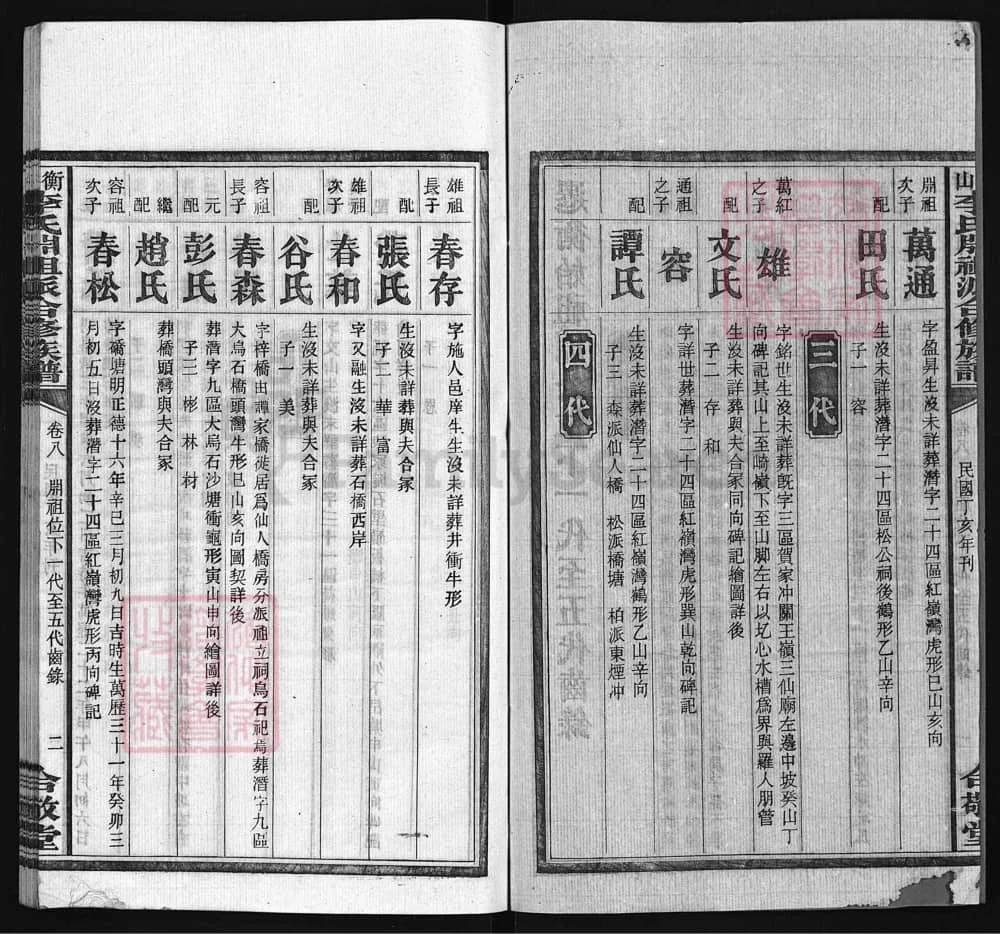 民國丁亥年刊
合敬堂
鼎祖次子
萬通
字盈昇生沒未詳葬潛字二十四區紅嶺灣虎形巳山亥向
配
田氏
生沒未詳葬潛字二十四區松公祠後鶴形乙山辛向
子一 容
三代
萬紅之子
雄
字銘世生沒未詳葬旣字三區賀家冲關王嶺三仙廟左邊中坡癸山丁
向碑記其山上至崎嶺下至山脚左右以圪心水槽為界與羅人朋管
配
文氏
生沒未詳葬與夫合冢同向碑記繪圖詳後
子二 存 和
通祖之子
容
字詳世葬潛字二十四區紅嶺灣虎形巽山乾向碑記
配
譚氏
生沒未詳葬潛字二十四區紅嶺灣鶴形乙山辛向
子三 森派仙人橋 松派橋塘 柏派東煙冲
四代
雄祖長子
春存
字施人邑庠生生沒未詳葬井衝牛形
配
張氏
生沒未詳葬與夫合冢
子二 華 富
雄祖次子
春和
字又融生沒未詳葬石橋西岸
配
谷氏
生沒未詳葬與夫合冢
子一 美
容祖長子
春森
字梓橋由譚家橋徙居為仙人橋房分派祖立祠烏石祀焉葬潛字九區
大烏石橋頭灣牛形巳山亥向圖契詳後
元配
彭氏
葬潛字九區大烏石沙塘衝龜形寅山申向繪圖詳後
子三 彬 林 材
繼配
趙氏
葬橋頭灣與夫合冢
容祖次子
春松
字礄塘明正德十六年辛巳三月初九日吉時生萬歷三十一年癸卯三
月初五日沒葬潛字二十四區紅嶺灣虎形丙向碑記
衡
李氏鼎祖派合修族譜
卷八
鼎祖位下一代至五代齒錄
二
合敬堂